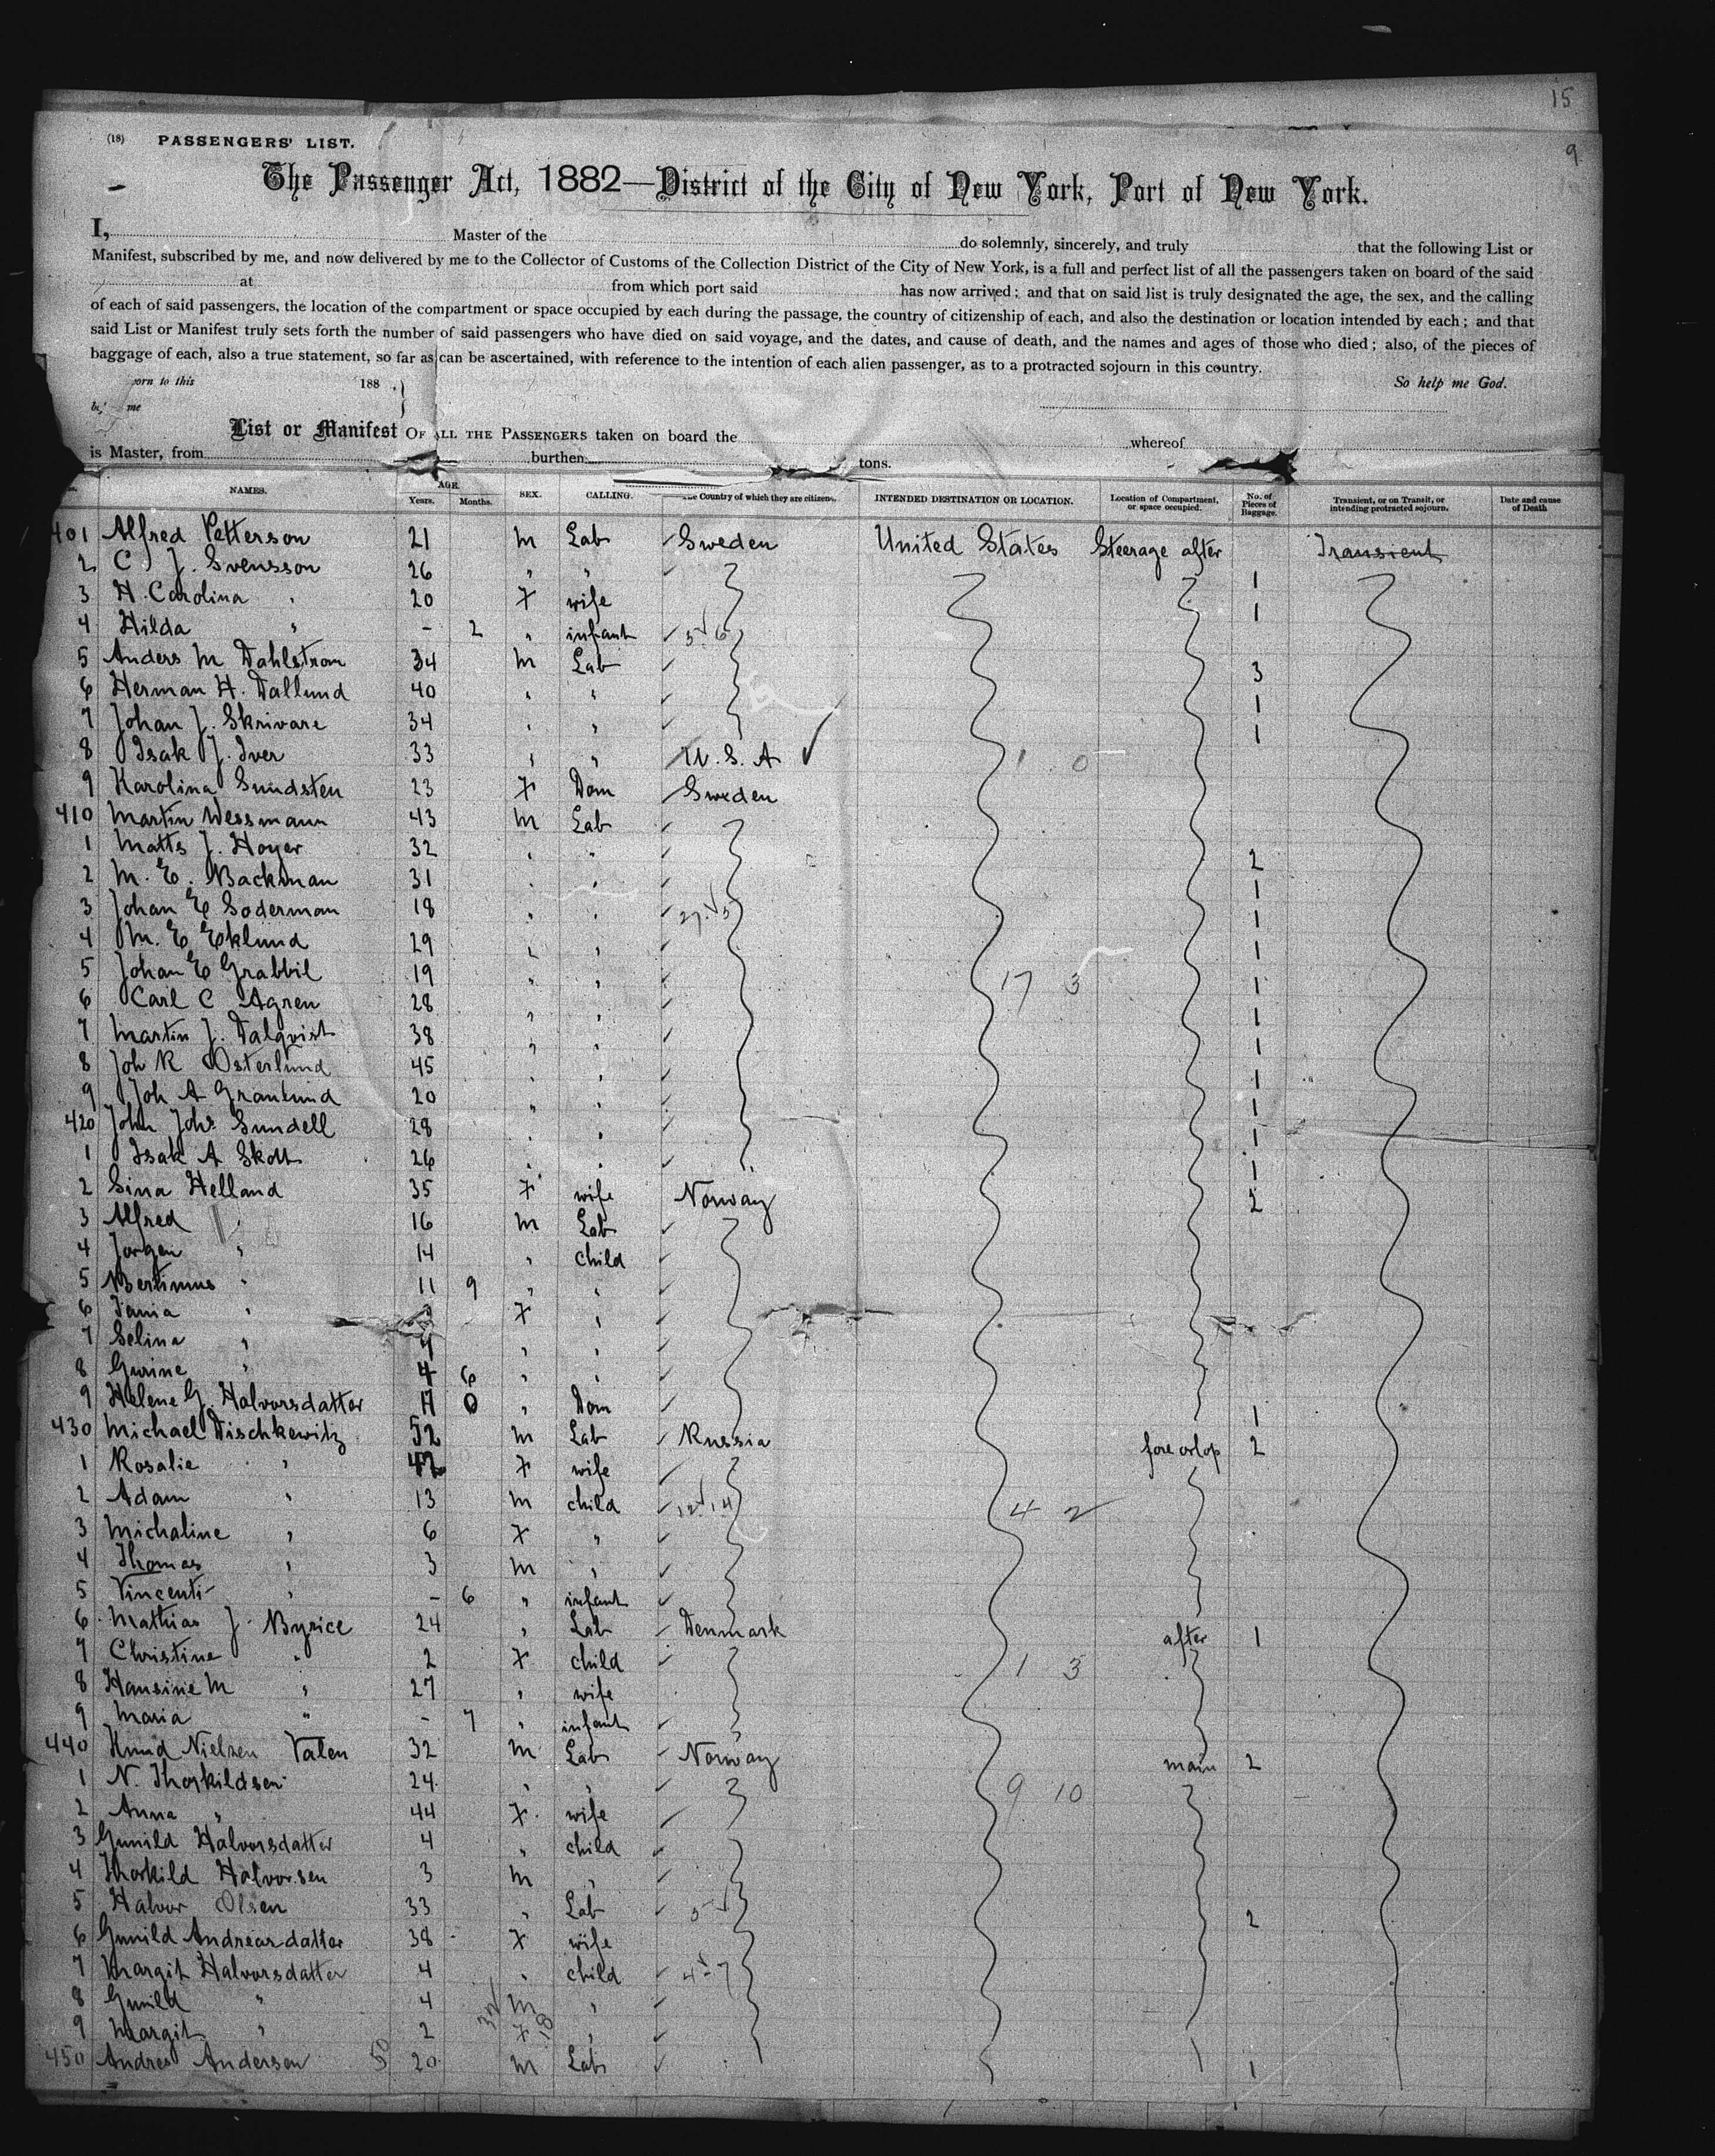 15
9
(18) PASSENGERS' LIST.
The Passenger Act, 1882—District of the City of New York, Port of New York.
I, Master of the do solemnly, sincerely, and truly that the following List or
Manifest, subscribed by me, and now delivered by me to the Collector of Customs of the Collection District of the City of New York, is a full and perfect list of all the passengers taken on board of the said
at from which port said has now arrived; and that on said list is truly designated the age, the sex, and the calling
of each of said passengers, the location of the compartment or space occupied by each during the passage, the country of citizenship of each, and also the destination or location intended by each; and that
said List or Manifest truly sets forth the number of said passengers who have died on said voyage, and the dates, and cause of death, and the names and ages of those who died; also, of the pieces of
baggage of each, also a true statement, so far as can be ascertained, with reference to the intention of each alien passenger, as to a protracted sojourn in this country.
So help me God.
orn to this 188
me
List or Manifest OF ALL THE PASSENGERS taken on board the whereof
is Master, from burthen tons.
NAMES. AGE. Years. Months. SEX. CALLING. The Country of which they are citizens. INTENDED DESTINATION OR LOCATION. Location of Compartment, or space occupied. No. of Pieces of Baggage. Transient, or on Transit, or intending protracted sojourn. Date and cause of Death
401 Alfred Petterson 21 m Lab Sweden United States Steerage after Transient
2 C. J. Svensson 26 " " 1
3 H. Carolina " 20 F wife 1
4 Hilda " - 2 " infant 5 6
5 Anders M Dahlstrom 34 m Lab 3
6 Herman H. Dallund 40 " " 1
7 Johan J. Skrivare 34 " " 1
8 Isak J. Iver 33 " " U.S.A 1 0
9 Karolina Sundsten 23 F Dom Sweden
410 Martin Wessmann 43 m Lab
1 Matts J. Hoyer 32 " " 2
2 M. E. Backman 31 " " 1
3 Johan E Soderman 18 " " 27 5 1
4 M. E Eklund 29 " " 1
5 Johan E Grabbil 19 " " 17 3 1
6 Carl C Agren 28 " " 1
7 Martin J. Dalqvist 38 " " 1
8 Joh R Osterlund 45 " " 1
9 Joh A Granlund 20 " " 1
420 John Johs Sundell 28 " " 1
1 Isak A Skott 26 " " 1
2 Sina Helland 35 F wife Norway 2
3 Alfred " 16 m Lab
4 Jorgen " 14 " child
5 Bertinus " 11 9 " "
6 " F "
7 Selina " " "
8 Gurine " 4 6 " "
9 Helene G. Halvorsdatter 0 " Dom 1
430 Michael Dischkewitz 52 m Lab Russia fore orlop 2
1 Rosalie " 42 F wife
2 Adam " 13 m child 12 14 4 2
3 Michaline " 6 F "
4 Thomas " 3 m "
5 Vincenti " - 6 " infant
6 Mathias J. Byrice 24 " Lab Denmark after 1
7 Christine " 2 F child 1 3
8 Hansine M " 27 " wife
9 Maria " - 7 " infant
440 Knud Nielsen Valen 32 m Lab Norway main 2
1 N. Thorkildsen 24 " " 9 10
2 Anna " 44 F wife
3 Gunild Halvorsdatter 4 " child
4 Thorkild Halvorsen 3 m "
5 Halvor Olsen 33 " Lab 5 2
6 Gunild Andreasdatter 38 F wife
7 Margit Halvorsdatter 4 " child 4 7
8 Gunild " 4 m "
9 Margit " 2 F "
450 Andres Andersen 50 20 m Lab 1